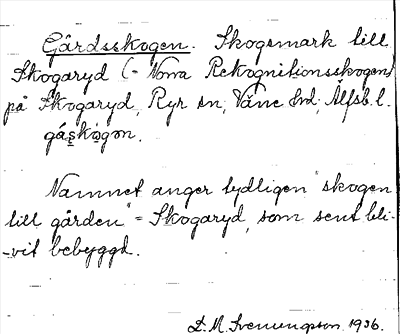 Gårdsskogen. Skogsmark till
Skogaryd (= Norra Rekognitionsskogen)
på Skogaryd, Ryr sn; Väne hd; Älfsb. l.
gåṣkȯgɔn.
Namnet anger tydligen "skogen
till gården" = Skogaryd, som sent bli-
-vit bebyggd.
D. M. Svenungsson 1936.